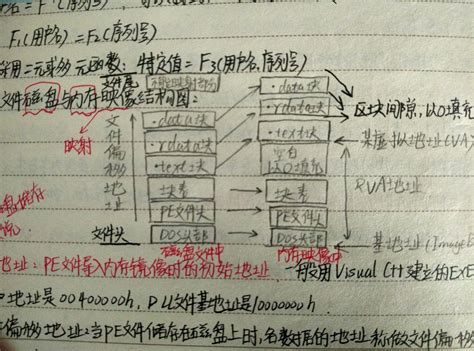 F₁(用户名)=F₂(序列号)
采用二元或多元函数: 特定值=F₃(用户名,序列号)
文件磁盘与内存映像结构图:
映射
文件偏移地址
文件头
.data块
.rdata块
.text块
块表
PE文件头
DOS头部
磁盘文件中
.data块
.rdata块
.text块
空白
以0填充
块表
PE文件头
DOS头部
内存映像中
区块间隙,以0填充
某虚拟地址(VA)
RVA地址
基地址(Image
地址: PE文件载入内存镜像时的初始地址
一般用Visual C++建立的EXE
地址是00400000h, DLL文件基地址是10000000h
偏移地址:当PE文件储存在磁盘上时,各数据的地址称做文件偏移